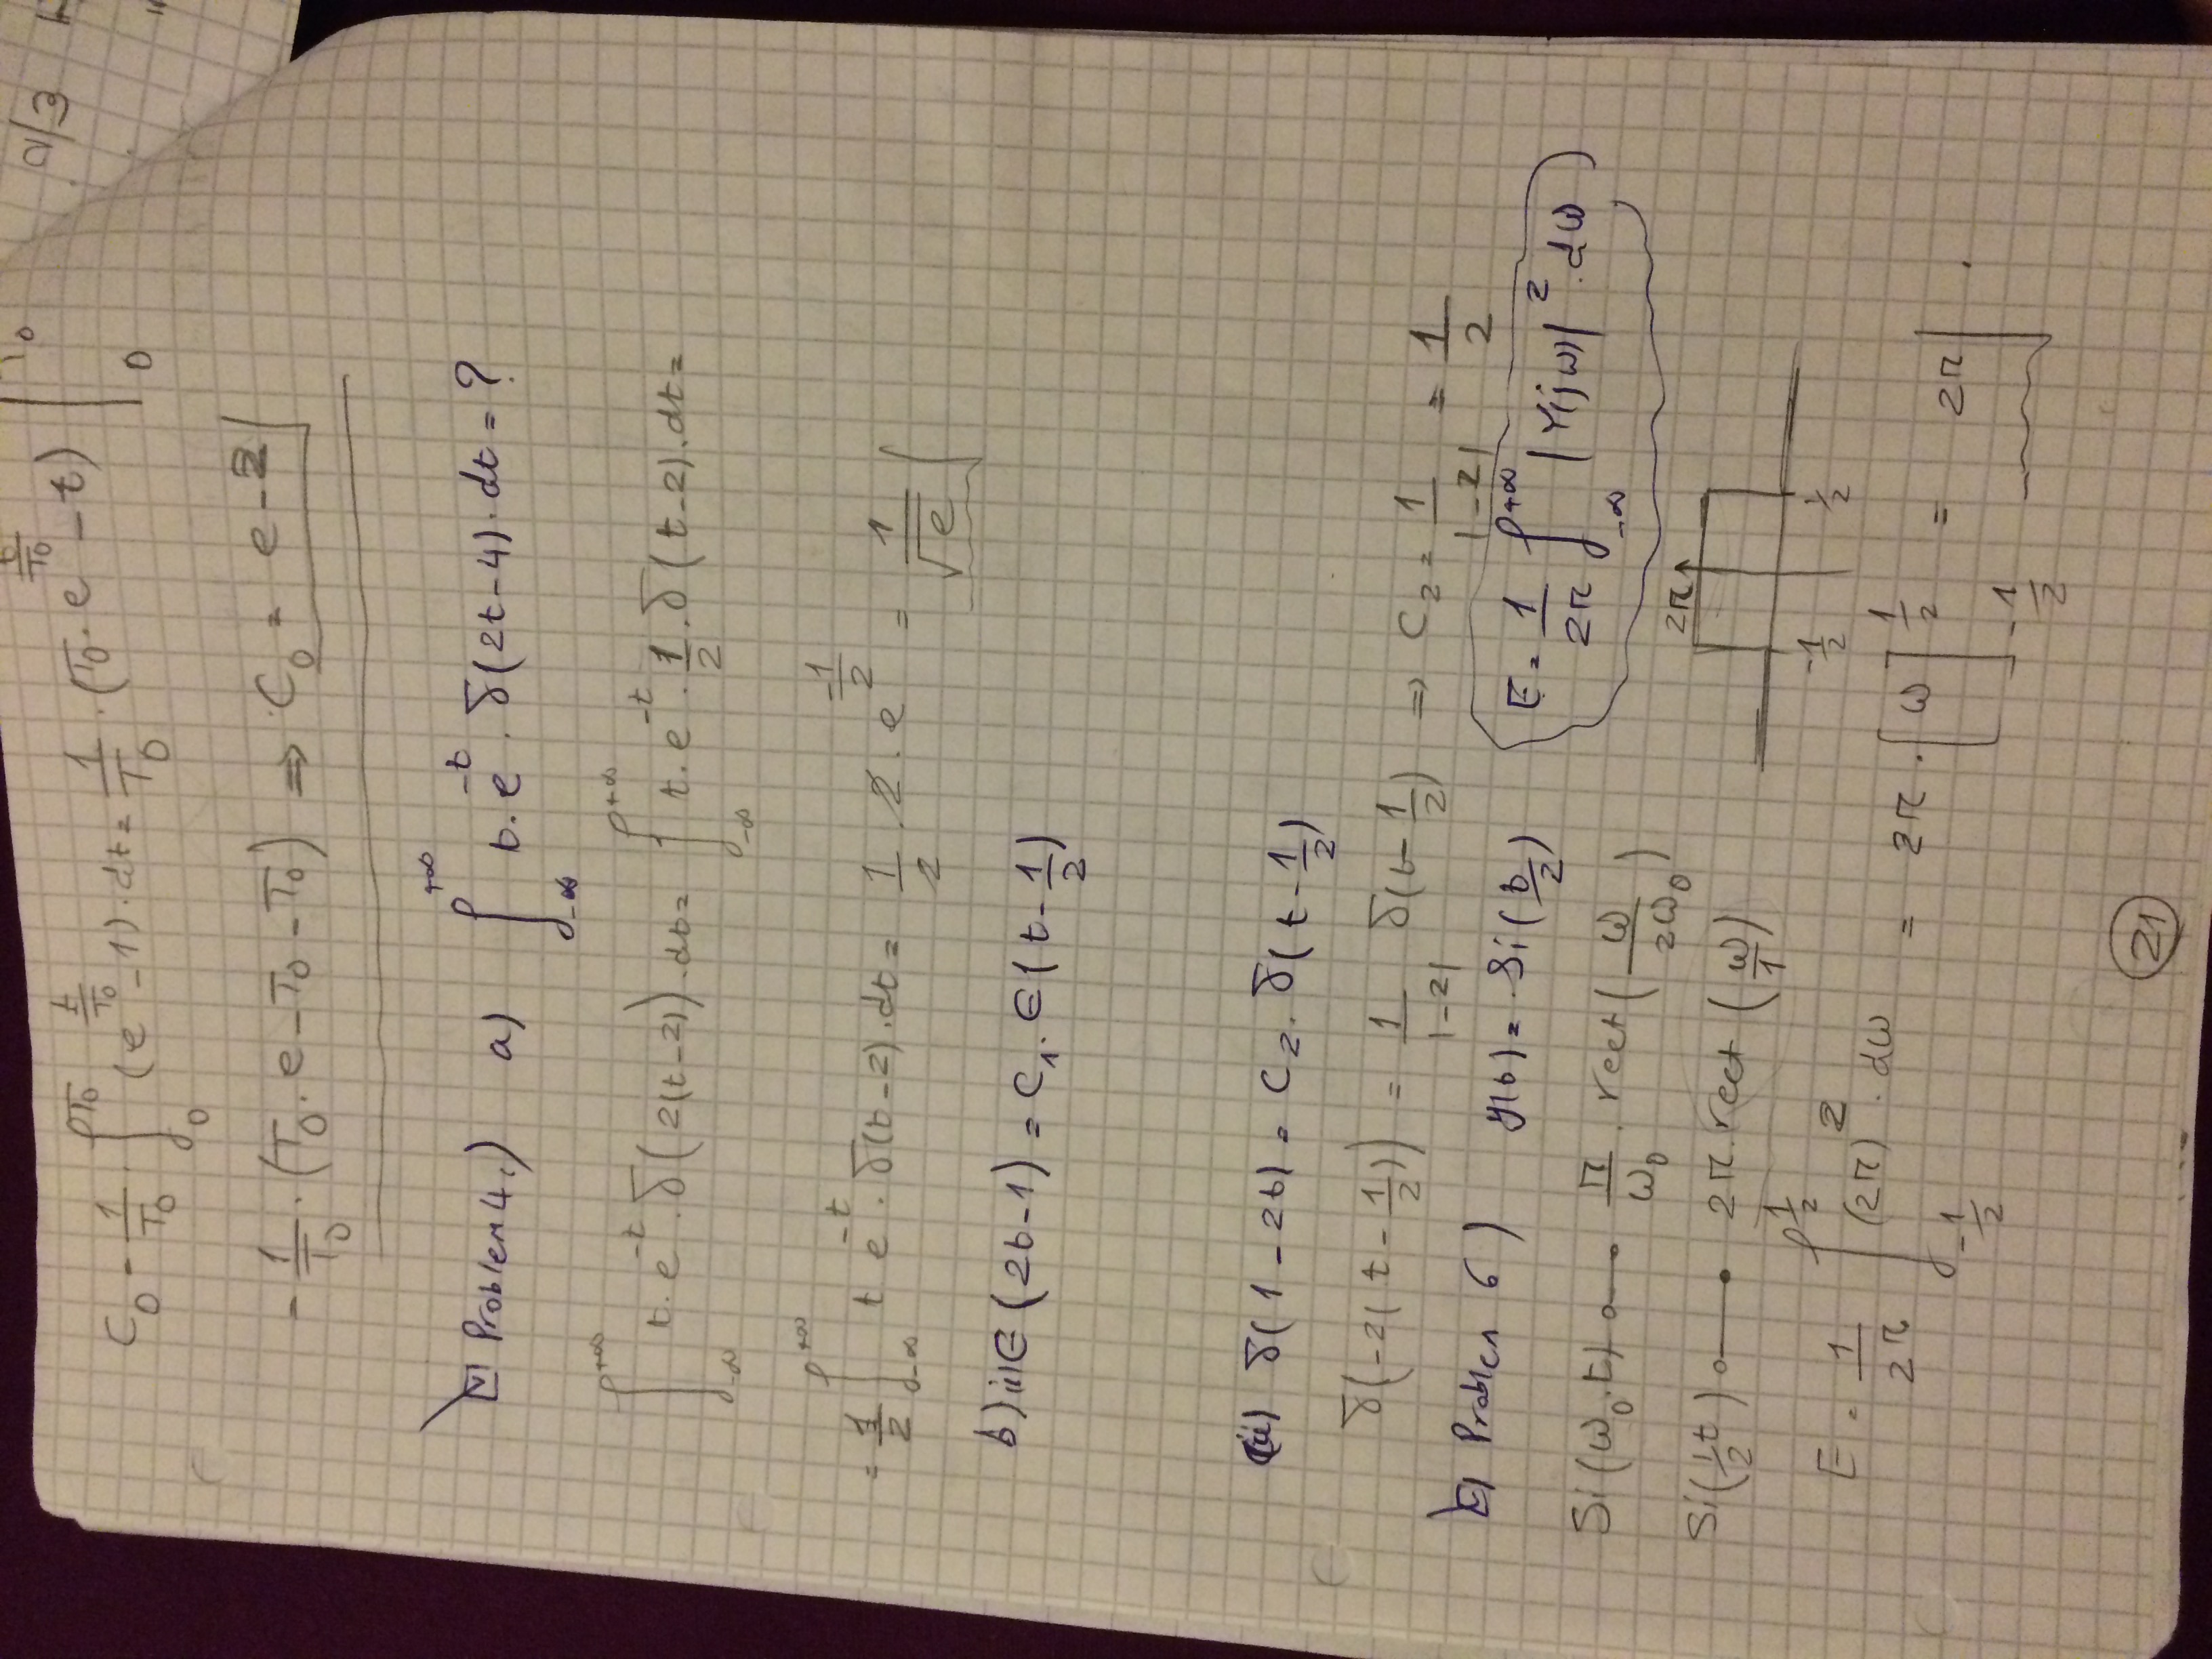 C₀ = 1/T₀ · ∫₀^T₀ (e^(t/T₀) - 1) · dt = 1/T₀ · (T₀ · e^(t/T₀) - t) |₀^T₀
2/3
= 1/T₀ · (T₀ · e - T₀ - T₀) ⇒ C₀ = e - 2
Problem 4.) a) ∫_-∞^+∞ t · e^-t · δ(2t-4) · dt = ?
∫_-∞^+∞ t · e^-t · δ(2(t-2)) · dt = ∫_-∞^+∞ t · e^-t · 1/2 · δ(t-2) · dt =
= 1/2 ∫_-∞^+∞ t e^-t · δ(t-2) · dt = 1/2 · 2 · e^(-1/2) = 1/√e
b) i) ∈(2t-1) = C₁ · ∈(t - 1/2)
(ii) δ(1-2t) = C₂ · δ(t - 1/2)
δ(-2(t - 1/2)) = 1/|-2| δ(t - 1/2) ⇒ C₂ = 1/|-2| = 1/2
Problem 6) y(t) = Si(t/2) E = 1/2π ∫_-∞^+∞ |Y(jω)|² · dω
Si(ω₀·t) ○—● π/ω₀ · rect(ω/2ω₀)
Si(1/2 t) ○—● 2π · rect(ω/1)
2π
-1/2 1/2
E = 1/2π ∫_-1/2^1/2 (2π)² · dω = 2π · [ω]_-1/2^1/2 = 2π
21